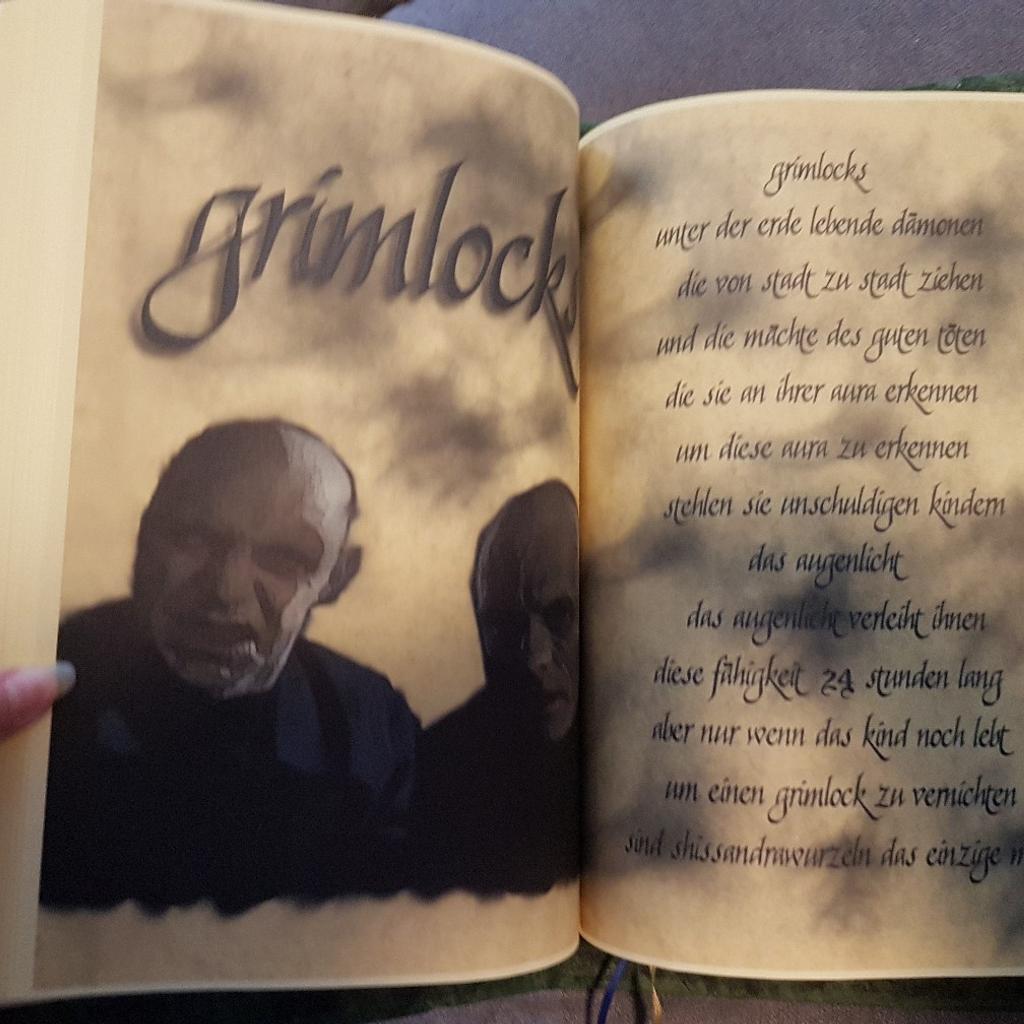 grimlocks
grimlocks
unter der erde lebende dämonen
die von stadt zu stadt ziehen
und die mächte des guten töten
die sie an ihrer aura erkennen
um diese aura zu erkennen
stehlen sie unschuldigen kindern
das augenlicht
das augenlicht verleiht ihnen
diese fähigkeit 24 stunden lang
aber nur wenn das kind noch lebt
um einen grimlock zu vernichten
sind shissandrawurzeln das einzige